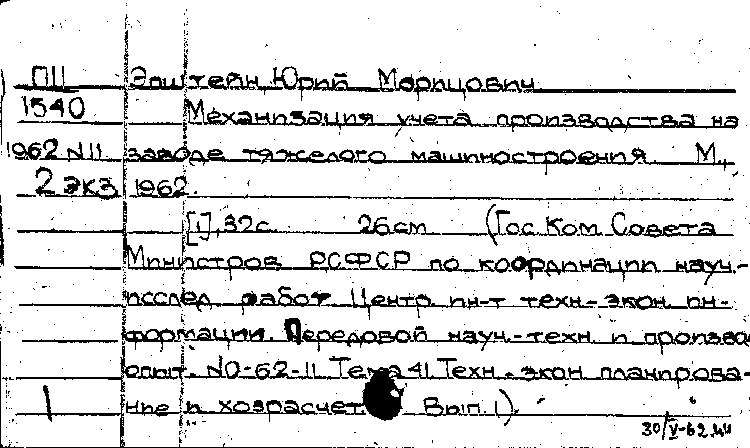 ПII Эпштейн, Юрий Морицович
1540 Механизация учета производства на
1962 N11 заводе тяжелого машиностроения М.,
2 экз 1962.
[1], 32 с. 26 см (Гос. Ком. Совета
Министров РСФСР по координации науч.-
исслед. работ Центр. ин-т техн.-экон. ин-
формации. Передовой науч.-техн. и произв.
опыт. NО-62-11 Тема 41 Техн.-экон. планирова-
1 ние и хозрасчет. Вып. 1).
30/V-62